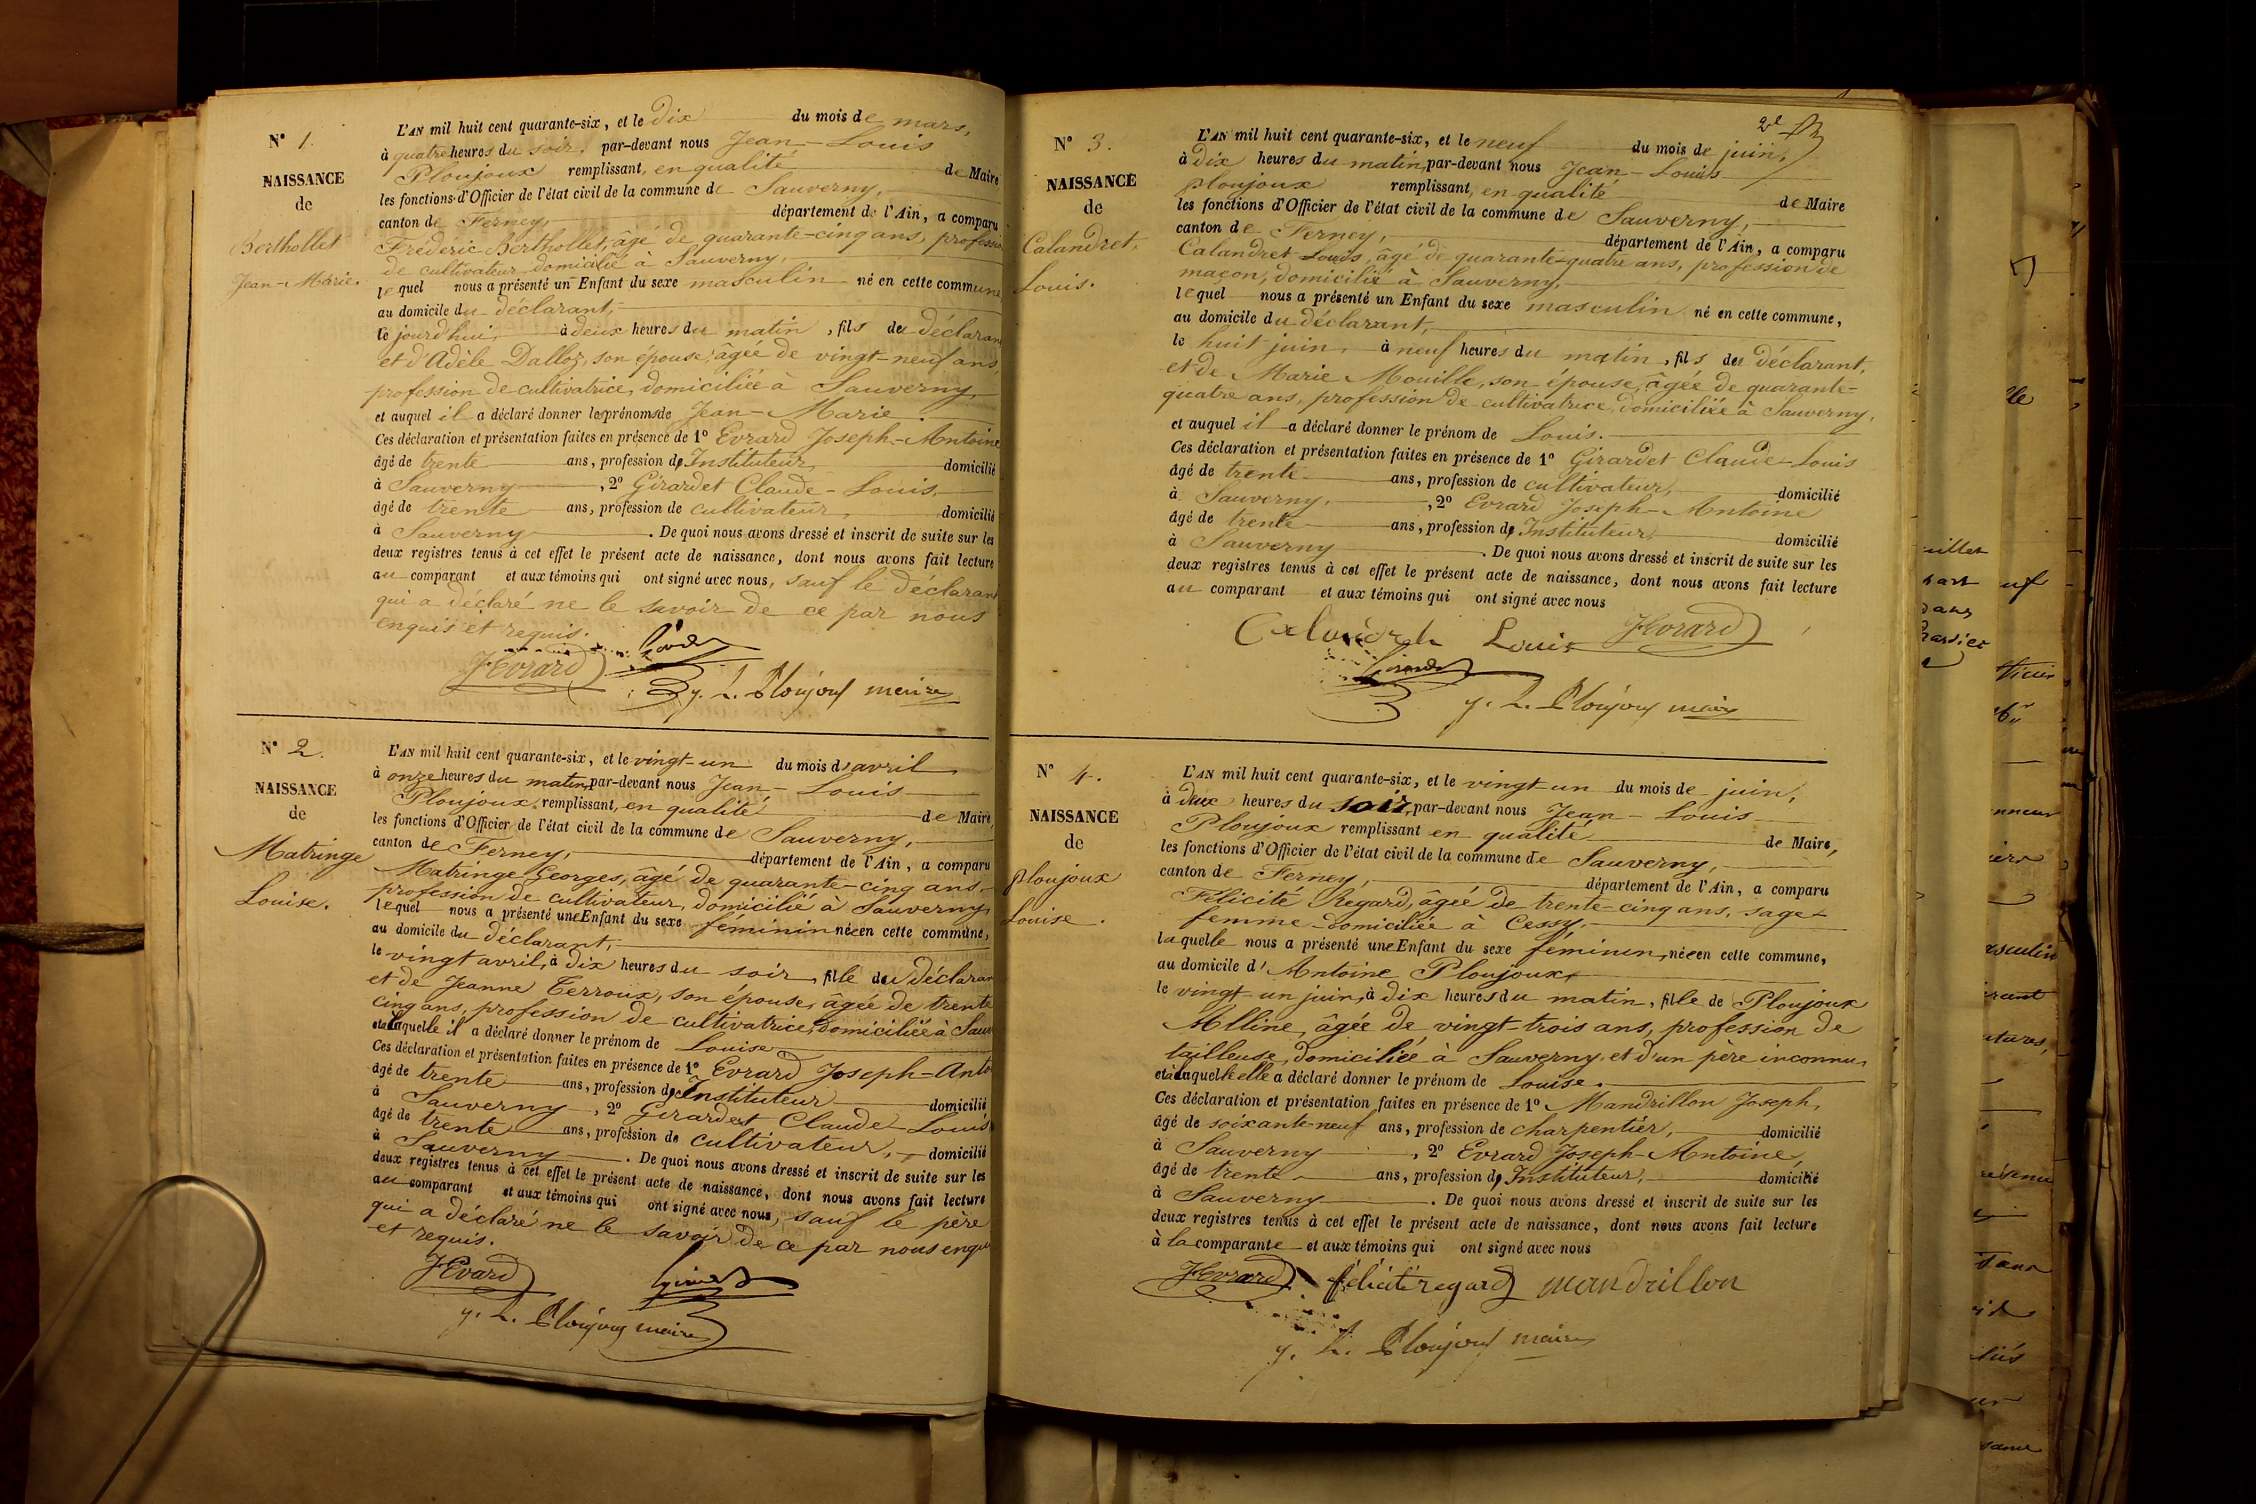 N° 1.
NAISSANCE
de
Berthollet
Jean-Marie.
L'AN mil huit cent quarante-six, et le dix du mois de mars,
à quatre heures du soir, par-devant nous Jean-Louis
Ploujoux remplissant, en qualité de Maire
les fonctions d'Officier de l'état civil de la commune de Sauverny,
canton de Ferney, département de l'Ain, a comparu
Fréderic Berthollet, âgé de quarante-cinq ans, professi
de cultivateur domicilié à Sauverny,
lequel nous a présenté un Enfant du sexe masculin né en cette commune
au domicile du déclarant,
le jourd'hui, à deux heures du matin, fils du déclaran
et d'Adèle Dalloz, son épouse, âgée de vingt-neuf ans,
profession de cultivatrice, domiciliée à Sauverny,
et auquel il a déclaré donner les prénoms de Jean-Marie.
Ces déclaration et présentation faites en présence de 1° Evrard Joseph-Antoine
âgé de trente ans, profession d'Instituteur, domicilié
à Sauverny, 2° Girardet Claude-Louis,
âgé de trente ans, profession de cultivateur, domicilié
à Sauverny. De quoi nous avons dressé et inscrit de suite sur les
deux registres tenus à cet effet le présent acte de naissance, dont nous avons fait lecture
au comparant et aux témoins qui ont signé avec nous, sauf le déclaran
qui a déclaré ne le savoir de ce par nous
enquis et requis.
JEvrard
J. L. Ploujoux maire
N° 2.
NAISSANCE
de
Matringe
Louise.
L'AN mil huit cent quarante-six, et le vingt-un du mois d'avril
à onze heures du matin, par-devant nous Jean-Louis
Ploujoux, remplissant, en qualité de Maire,
les fonctions d'Officier de l'état civil de la commune de Sauverny,
canton de Ferney, département de l'Ain, a comparu
Matringe Georges, âgé de quarante-cinq ans,
profession de cultivateur, domicilié à Sauverny,
lequel nous a présenté une Enfant du sexe féminin née en cette commune,
au domicile du déclarant,
le vingt avril, à dix heures du soir, fille du déclaran
et de Jeanne Terroux, son épouse, âgée de trente
cinq ans, profession de cultivatrice, domiciliée à Sauv
et à laquelle il a déclaré donner le prénom de Louise
Ces déclaration et présentation faites en présence de 1° Evrard Joseph-Anto
âgé de trente ans, profession d'Instituteur domicilié
à Sauverny, 2° Girardet Claude-Louis
âgé de trente ans, profession de cultivateur, domicilié
à Sauverny. De quoi nous avons dressé et inscrit de suite sur les
deux registres tenus à cet effet le présent acte de naissance, dont nous avons fait lecture
au comparant et aux témoins qui ont signé avec nous, sauf le père
qui a déclaré ne le savoir de ce par nous enqu
et requis.
JEvard
J. L. Ploujoux maire
N° 3.
NAISSANCE
de
Calandret,
Louis.
L'AN mil huit cent quarante-six, et le neuf du mois de juin,
à dix heures du matin, par-devant nous Jean-Louis
ploujoux remplissant, en qualité de Maire
les fonctions d'Officier de l'état civil de la commune de Sauverny,
canton de Ferney, département de l'Ain, a comparu
Calandret Louis, âgé de quarante-quatre ans, profession de
maçon, domicilié à Sauverny,
lequel nous a présenté un Enfant du sexe masculin né en cette commune,
au domicile du déclarant,
le huit juin, à neuf heures du matin, fils du déclarant,
et de Marie Mouille, son épouse, âgée de quarante-
quatre ans, profession de cultivatrice, domiciliée à Sauverny,
et auquel il a déclaré donner le prénom de Louis.
Ces déclaration et présentation faites en présence de 1° Girardet Claude-Louis
âgé de trente ans, profession de cultivateur, domicilié
à Sauverny, 2° Evrard Joseph-Antoine
âgé de trente ans, profession d'Instituteur, domicilié
à Sauverny. De quoi nous avons dressé et inscrit de suite sur les
deux registres tenus à cet effet le présent acte de naissance, dont nous avons fait lecture
au comparant et aux témoins qui ont signé avec nous
Calandret Louis JEvrard
J. L. Ploujoux maire
N° 4.
NAISSANCE
de
ploujoux
Louise.
L'AN mil huit cent quarante-six, et le vingt-un du mois de juin,
à deux heures du soir, par-devant nous Jean-Louis
Ploujoux remplissant en qualité de Maire,
les fonctions d'Officier de l'état civil de la commune de Sauverny,
canton de Ferney, département de l'Ain, a comparu
Félicité Regard, âgée de trente-cinq ans, sage-
femme domiciliée à Cessy,
laquelle nous a présenté une Enfant du sexe féminin, née en cette commune,
au domicile d'Antoine Ploujoux,
le vingt-un juin, à dix heures du matin, fille de Ploujoux
Alline, âgée de vingt-trois ans, profession de
tailleuse, domiciliée à Sauverny, et d'un père inconnu,
et à laquelle elle a déclaré donner le prénom de Louise.
Ces déclaration et présentation faites en présence de 1° Mandrillon Joseph,
âgé de soixante-neuf ans, profession de charpentier, domicilié
à Sauverny, 2° Evrard Joseph-Antoine,
âgé de trente ans, profession d'Instituteur, domicilié
à Sauverny. De quoi nous avons dressé et inscrit de suite sur les
deux registres tenus à cet effet le présent acte de naissance, dont nous avons fait lecture
à la comparante et aux témoins qui ont signé avec nous
JEvrard félicité regard mandrillon
J. L. Ploujoux maire